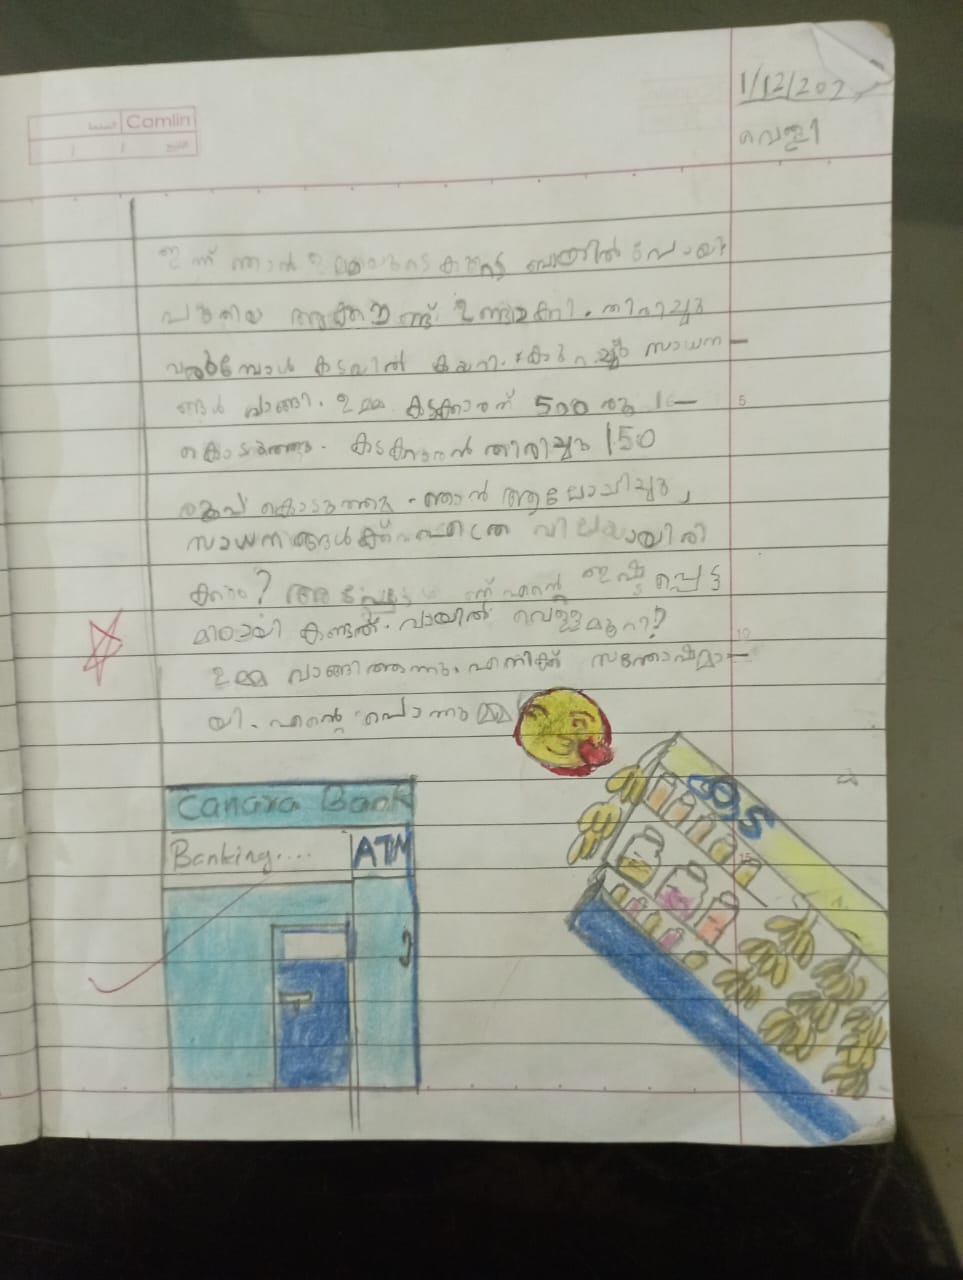 Comlin
1/12/202
വെള്ളി
ഇന്ന് ഞാൻ ഉമ്മയുടെ കൂടെ ബാങ്കിൽ പോയി
പുതിയ അക്കൗണ്ട് ഉണ്ടാക്കി. തിരിച്ചു
വരുമ്പോൾ കടയിൽ കയറി. കുറച്ചു സാധന
ങ്ങൾ വാങ്ങി. ഉമ്മ കടക്കാരന് 500 രൂ
കൊടുത്തു. കടക്കാരൻ തിരിച്ചു 150
രൂപ കൊടുത്തു. ഞാൻ ആലോചിച്ചു,
സാധനങ്ങൾക്ക് എത്ര വിലയായിരി
ക്കും? അപ്പോൾ എന്റെ ഇഷ്ടപ്പെട്ട
മിഠായി കണ്ടത്. വായിൽ വെള്ളമൂറി?
5
10
ഉമ്മ വാങ്ങിത്തന്നു. എനിക്ക് സന്തോഷമാ
യി. എന്റെ പൊന്നുമ്മ
Canara Bank
Banking....
ATM
കട
15